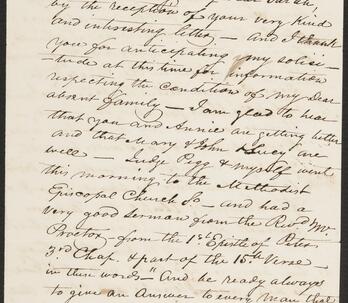 by the reception of your very kind
and interesting letter – And I thank
you for anticipating my solici-
-tude at this time for information
respecting the condition of my dear
absent family – I am glad to hear
that you and Annie are getting better
and that Mary & John & Lucy are
well – Judge Pegg & myself went
this morning to the Methodist
Episcopal Church So – and had a
very good sermon from the Revd Mr
Proctor – from the 1st Epistle of Peter
3rd Chap. & part of the 15th Verse –
in these words – "And be ready always
to give an Answer to every man that